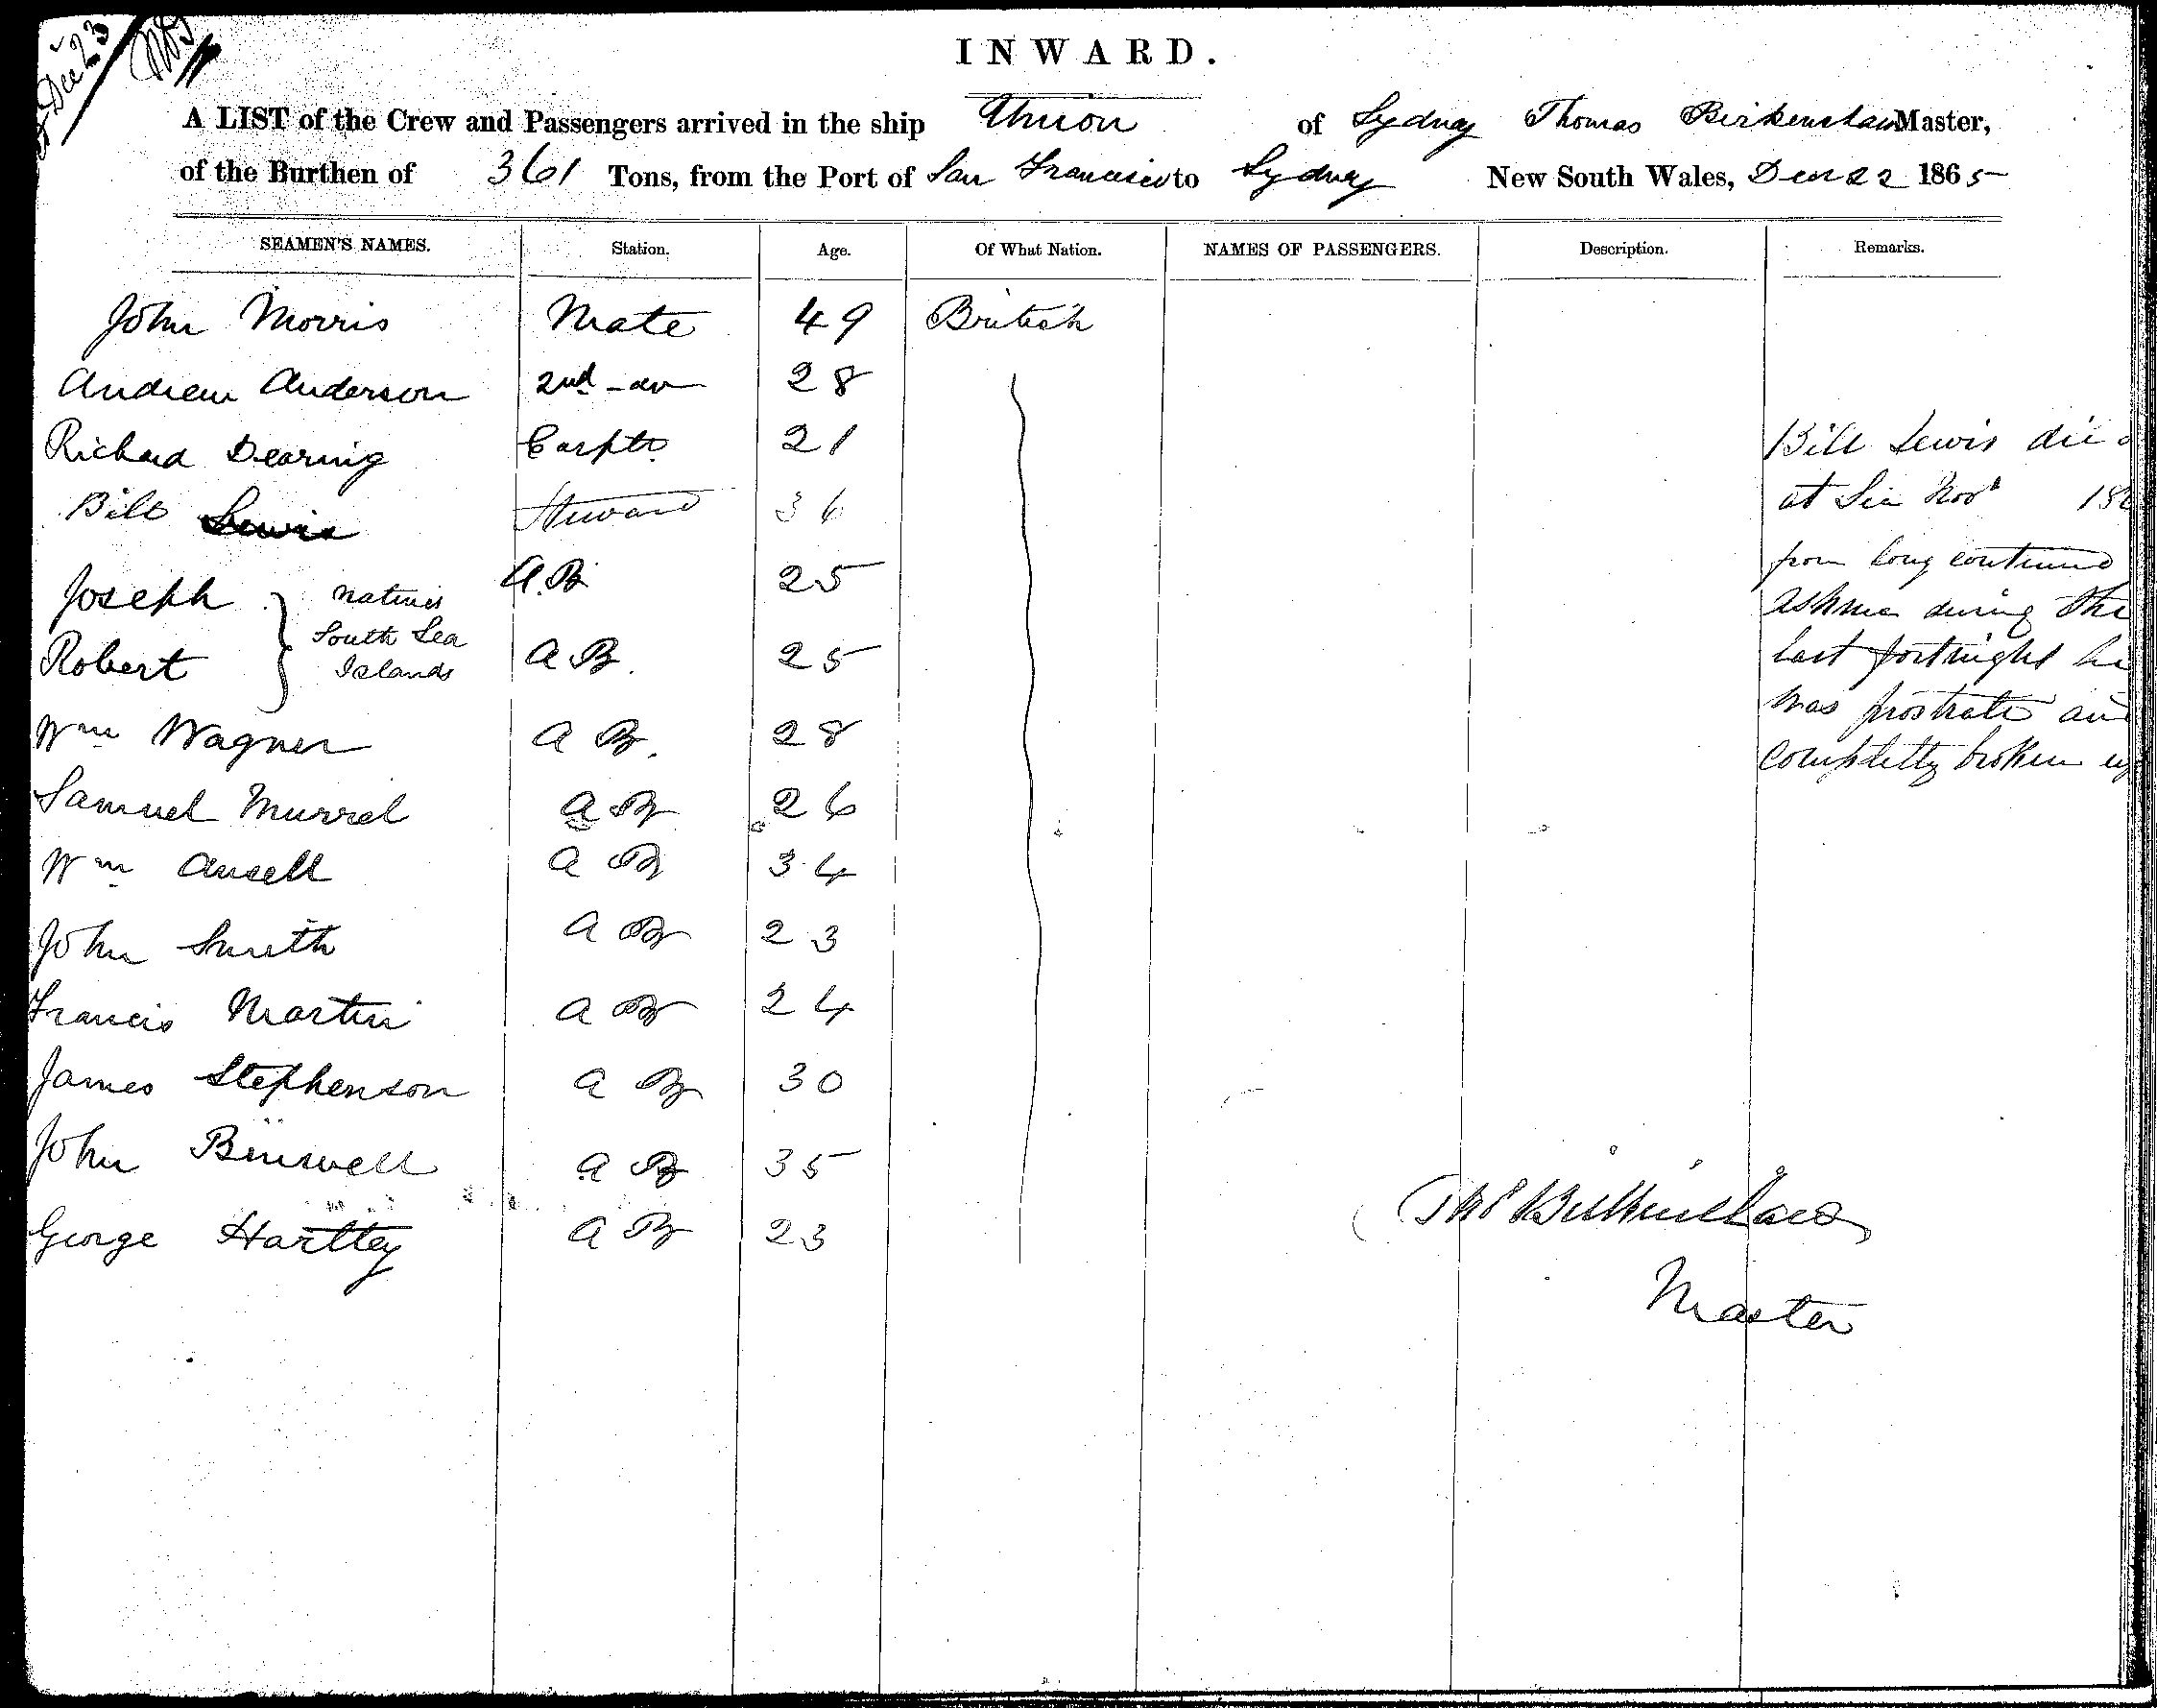 Dec 23
INWARD.
A LIST of the Crew and Passengers arrived in the ship Union of Sydney Thomas Birkenshaw Master,
of the Burthen of 361 Tons, from the Port of San Francisco to Sydney New South Wales, Decr 22 1865
SEAMEN'S NAMES. Station. Age. Of What Nation. NAMES OF PASSENGERS. Description. Remarks.
John Morris Mate 49 British
Andrew Anderson 2nd - do 28
Richard Dearing Carptr 21 Bill Lewis died
Bill Lewis Steward 36 at Sea Novr 186
Joseph } Natives A.B. 25 from long continued
South Sea ashma during the
Robert } Islands A B. 25 last fortnight he
was prostrate and
Wm Wagner A B. 28 completty broken up
Samuel Murrel A B 26
Wm Ansell A B 34
John Smith A B 23
Francis Martin A B 24
James Stephenson A B 30
John Binswell A B 35
George Harttey A B 23
Thos Birkinshaw
Master